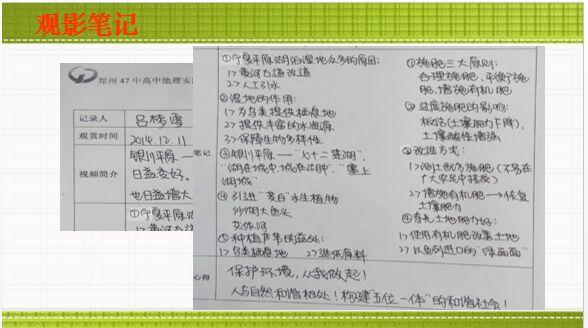 观影笔记
郑州47中高中地理实
记录人
观赏时间
2014.12.11
视频简介
银川平原一
日益变好。
也日益增大
①宁夏平原湖泊
笔记
①宁夏平原湖泊湿地众多的原因:
1>黄河古道改道
2>人工引水
②湿地的作用:
1>为鸟类提供栖息地
2>提供丰富的水资源
3>保障生物多样性
③银川平原——"七十二莲湖",
"湖在城中,城在湖中","塞上
湖城"
④引进"茭白"水生植物
沙湖大鱼头
⑤种植芦苇的益处:
1>鸟类栖息地 2>造纸原料
①施肥三大原则:
合理施肥,平衡施
肥,增施有机肥
②过度施肥的影响:
板结(土壤肥力下降),
土壤酸性增强
③改造方式:
1>测土配方施肥
2>增施有机肥→恢复
土壤肥力
土地肥力好:
1>使用有机肥改善土地
心得
保护环境,从我做起!
人与自然和谐相处!构建五位一体"的和谐社会!